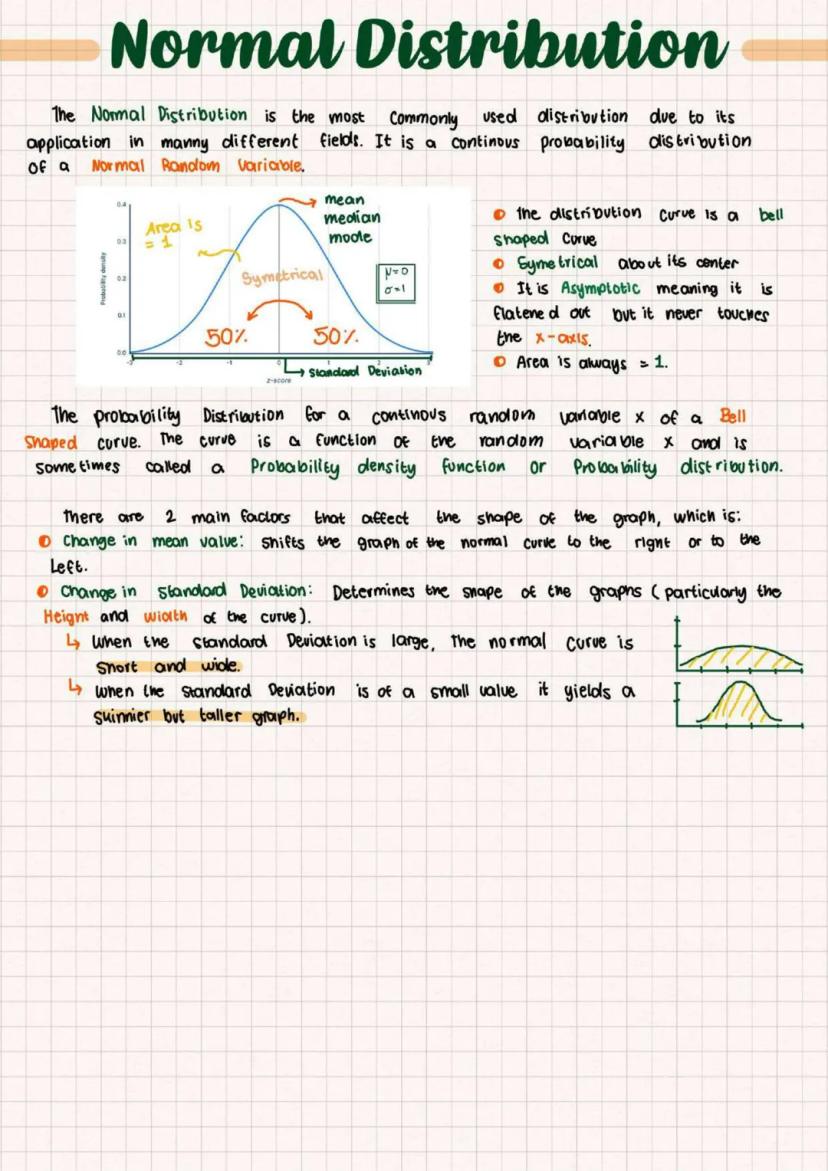 Normal Distribution
The Normal Distribution is the most commonly used distribution due to its
application in manny different fields. It is a continous probability distribution
of a Normal Random Variable.
0.4
0.3
0.2
0.1
0.0
Probability density
Area is
= 1
mean
median
mode
Symetrical
μ=0
σ=1
50%
50%
-3
-2
-1
0
1
2
3
z-score
Standard Deviation
The distribution curve is a bell
shaped curve
Symetrical about its center
It is Asymptotic meaning it is
flatened out but it never touches
the x-axis.
Area is always = 1.
The probability Distribution for a continous random variable x of a Bell
Shaped curve. The curve is a function of the random variable x and is
sometimes called a Probability density function or Probability distribution.
There are 2 main factors that affect the shape of the graph, which is:
Change in mean value: Shifts the graph of the normal curve to the right or to the
Left.
Change in Standard Deviation: Determines the shape of the graphs (particularly the
Height and width of the curve).
When the standard Deviation is large, the normal curve is
Short and wide.
When the Standard Deviation is of a small value it yields a
skinnier but taller graph.